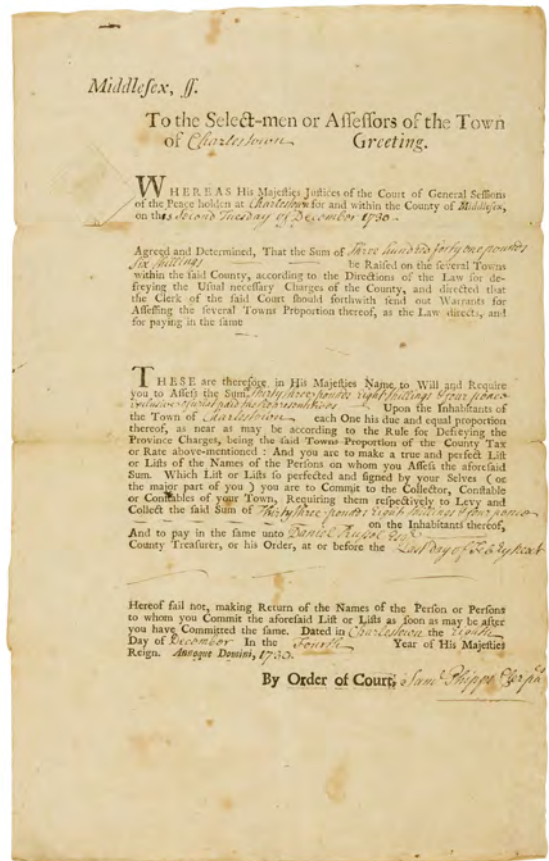 Middleſex, ſſ.
To the Select-men or Aſſeſſors of the Town
of Charlestown Greeting.
WHEREAS His Majeſties Juſtices of the Court of General Seſſions
of the Peace holden at Charlestown for and within the County of Middleſex,
on the Second Tuesday of December 1730
Agreed and Determined, That the Sum of Three hundred forty one pounds
Six shillings be Raiſed on the ſeveral Towns
within the ſaid County, according to the Directions of the Law for de-
freying the Uſual neceſſary Charges of the County, and directed that
the Clerk of the ſaid Court ſhould forthwith ſend out Warrants for
Aſſeſſing the ſeveral Towns Proportion thereof, as the Law directs, and
for paying in the ſame
THESE are therefore in His Majeſties Name to Will and Require
you to Aſſeſs the Sum thirty three pounds Eight shillings & four pence
Exclusive of what paid the Representatives Upon the Inhabitants of
the Town of Charlestown each One his due and equal proportion
thereof, as near as may be according to the Rule for Defreying the
Province Charges, being the ſaid Towns Proportion of the County Tax
or Rate above-mentioned : And you are to make a true and perfect Liſt
or Liſts of the Names of the Perſons on whom you Aſſeſs the aforeſaid
Sum. Which Liſt or Liſts ſo perfected and ſigned by your Selves ( or
the major part of you ) you are to Commit to the Collector, Conſtable
or Conſtables of your Town, Requiring them reſpectively to Levy and
Collect the ſaid Sum of Thirty three pounds Eight shillings & four pence
on the Inhabitants thereof,
And to pay in the ſame unto Daniel Russel Esqr.
County Treaſurer, or his Order, at or before the Last day of Febry next
Hereof fail not, making Return of the Names of the Perſon or Perſons
to whom you Commit the aforeſaid Liſt or Liſts as ſoon as may be after
you have Committed the ſame. Dated in Charlestown the Eighth
Day of December In the Fourth Year of His Majeſties
Reign. Annoque Domini, 1730.
By Order of Court, Saml Phipps Cler pa